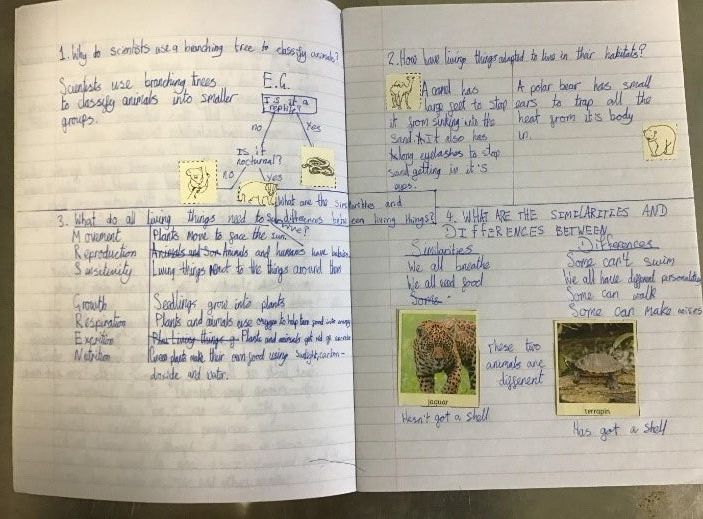 1. Why do scientists use a branching tree to classify animals?
Scientists use branching trees
to classify animals into smaller
groups.
E.G.
Is it a
reptile?
no
yes
Is it
nocturnal?
no
yes
What are the similarities and
differences between living things?
3. What do all living things need to
live?
Movement Plants move to face the sun.
Reproduction Animals and humans have babies.
Sensitivity Living things react to the things around them
Growth Seedlings grow into plants
Respiration Plants and animals use oxygen to help turn food into energy
Excretion Plants and animals get rid of
Nutrition Green plants make their own food using sunlight, carbon-
dioxide and water.
2. How have living things adapted to live in their habitats?
A camel has
large feet to stop
it from sinking into the
sand. It also has
long eyelashes to stop
sand getting in it's
eyes.
A polar bear has small
ears to trap all the
heat from it's body
in.
4. WHAT ARE THE SIMILARITIES AND
DIFFERENCES BETWEEN
Similarities
We all breathe
We all need food
Some
Differences
Some can't swim
We all have different personalities
Some can walk
Some can make noises
jaguar
Hasn't got a shell
These two
animals are
different
terrapin
Has got a shell